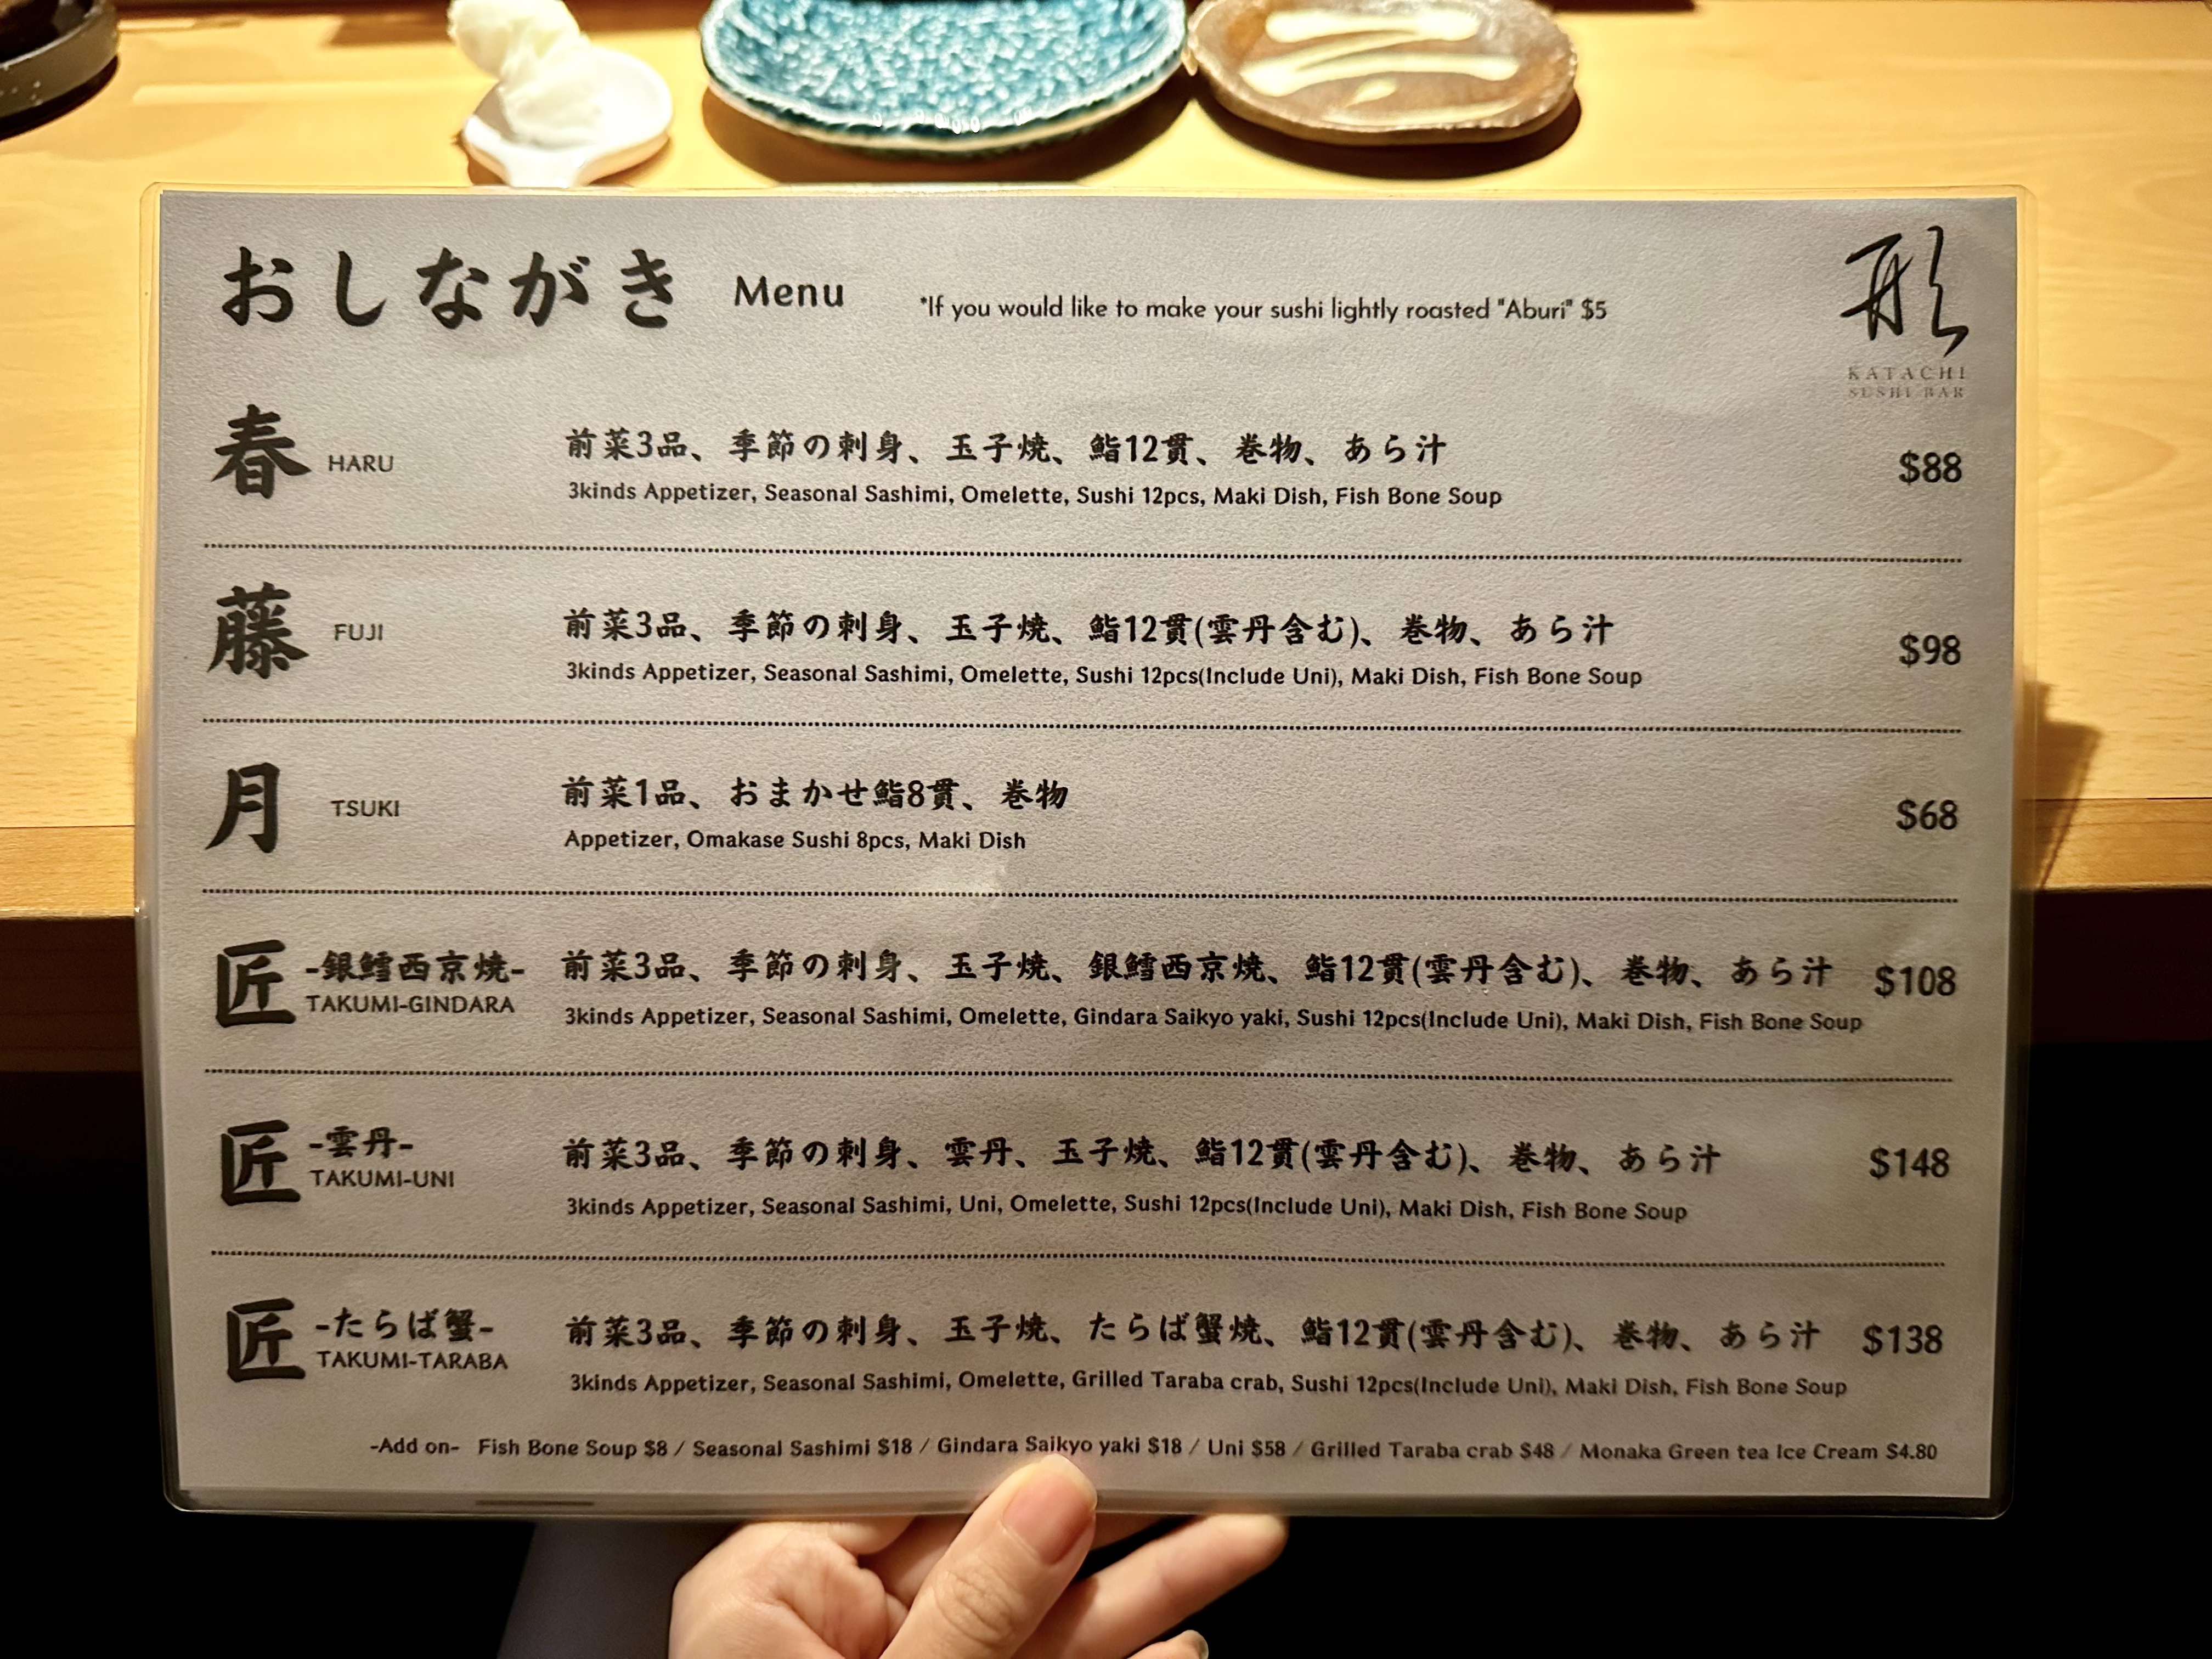 おしながき Menu *If you would like to make your sushi lightly roasted "Aburi" $5
形
KATACHI
SUSHI BAR
春 HARU 前菜3品、季節の刺身、玉子焼、鮨12貫、巻物、あら汁 $88
3kinds Appetizer, Seasonal Sashimi, Omelette, Sushi 12pcs, Maki Dish, Fish Bone Soup
藤 FUJI 前菜3品、季節の刺身、玉子焼、鮨12貫(雲丹含む)、巻物、あら汁 $98
3kinds Appetizer, Seasonal Sashimi, Omelette, Sushi 12pcs(Include Uni), Maki Dish, Fish Bone Soup
月 TSUKI 前菜1品、おまかせ鮨8貫、巻物 $68
Appetizer, Omakase Sushi 8pcs, Maki Dish
匠 -銀鱈西京焼- 前菜3品、季節の刺身、玉子焼、銀鱈西京焼、鮨12貫(雲丹含む)、巻物、あら汁 $108
TAKUMI-GINDARA 3kinds Appetizer, Seasonal Sashimi, Omelette, Gindara Saikyo yaki, Sushi 12pcs(Include Uni), Maki Dish, Fish Bone Soup
匠 -雲丹- 前菜3品、季節の刺身、雲丹、玉子焼、鮨12貫(雲丹含む)、巻物、あら汁 $148
TAKUMI-UNI 3kinds Appetizer, Seasonal Sashimi, Uni, Omelette, Sushi 12pcs(Include Uni), Maki Dish, Fish Bone Soup
匠 -たらば蟹- 前菜3品、季節の刺身、玉子焼、たらば蟹焼、鮨12貫(雲丹含む)、巻物、あら汁 $138
TAKUMI-TARABA 3kinds Appetizer, Seasonal Sashimi, Omelette, Grilled Taraba crab, Sushi 12pcs(Include Uni), Maki Dish, Fish Bone Soup
-Add on- Fish Bone Soup $8 / Seasonal Sashimi $18 / Gindara Saikyo yaki $18 / Uni $58 / Grilled Taraba crab $48 / Monaka Green tea Ice Cream $4.80